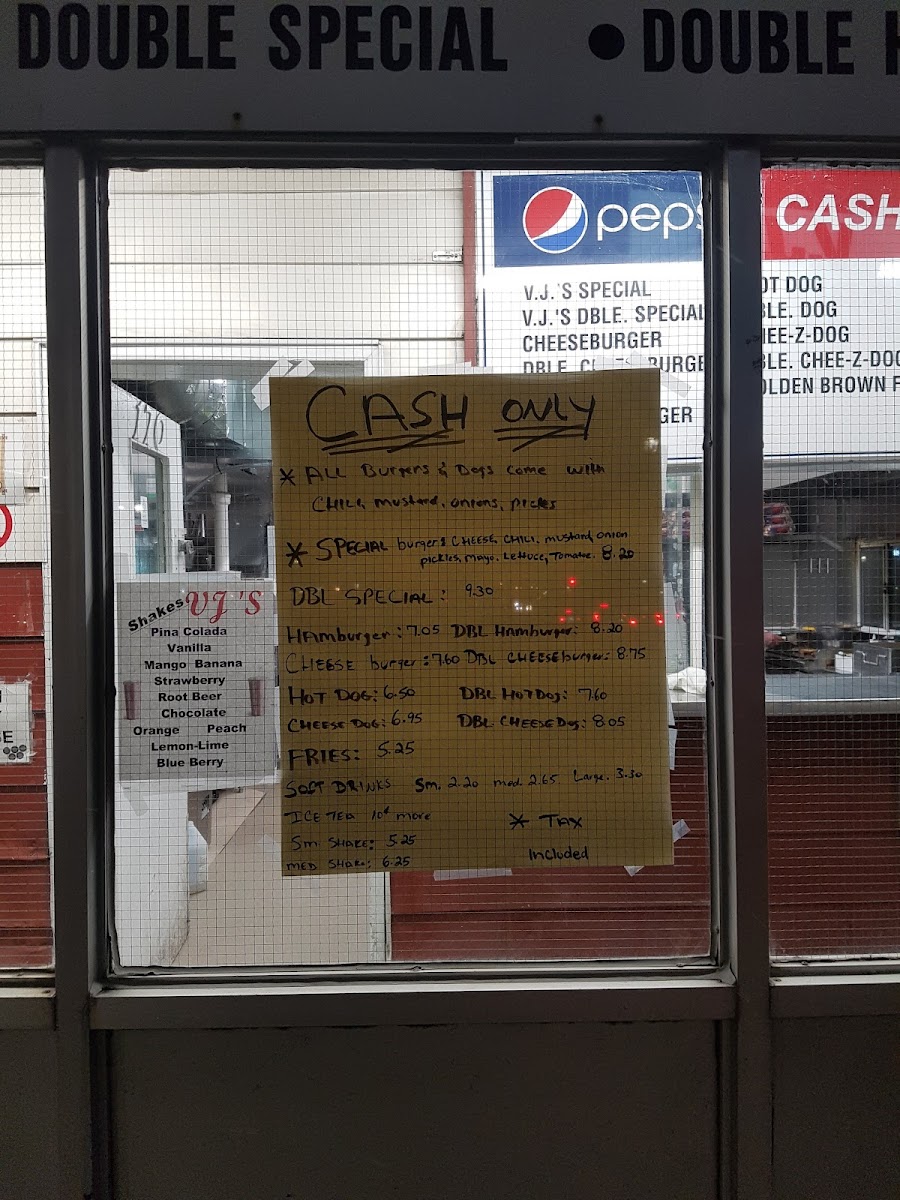 DOUBLE SPECIAL • DOUBLE
pepsi
CASH
V.J.'S SPECIAL
V.J.'S DBLE. SPECIAL
CHEESEBURGER
OT DOG
BLE. DOG
HEE-Z-DOG
BLE. CHEE-Z-DOG
OLDEN BROWN F
GER
176
CASH ONLY
* ALL Burgers & Dogs come with
CHILI, mustard, onions, pickles
* SPECIAL burgers CHEESE, CHILI, mustard, onion
pickles, mayo, Lettuce, Tomatoe. 8.20
DBL SPECIAL: 9.30
HAmburger: 7.05 DBL HAmburger: 8.20
CHEESE burger: 7.60 DBL CHEESEburger: 8.75
HOT DOG: 6.50 DBL HOTDOg: 7.60
CHEESE DOG: 6.95 DBL CHEESEDOg: 8.05
FRIES: 5.25
SOFT DRINKS Sm. 2.20 med. 2.65 Large. 3.30
ICE TEA 10¢ more
Sm. SHAKE: 5.25
MED SHAKE: 6.25
* TAX
Included
Shakes VJ'S
Pina Colada
Vanilla
Mango Banana
Strawberry
Root Beer
Chocolate
Orange Peach
Lemon-Lime
Blue Berry